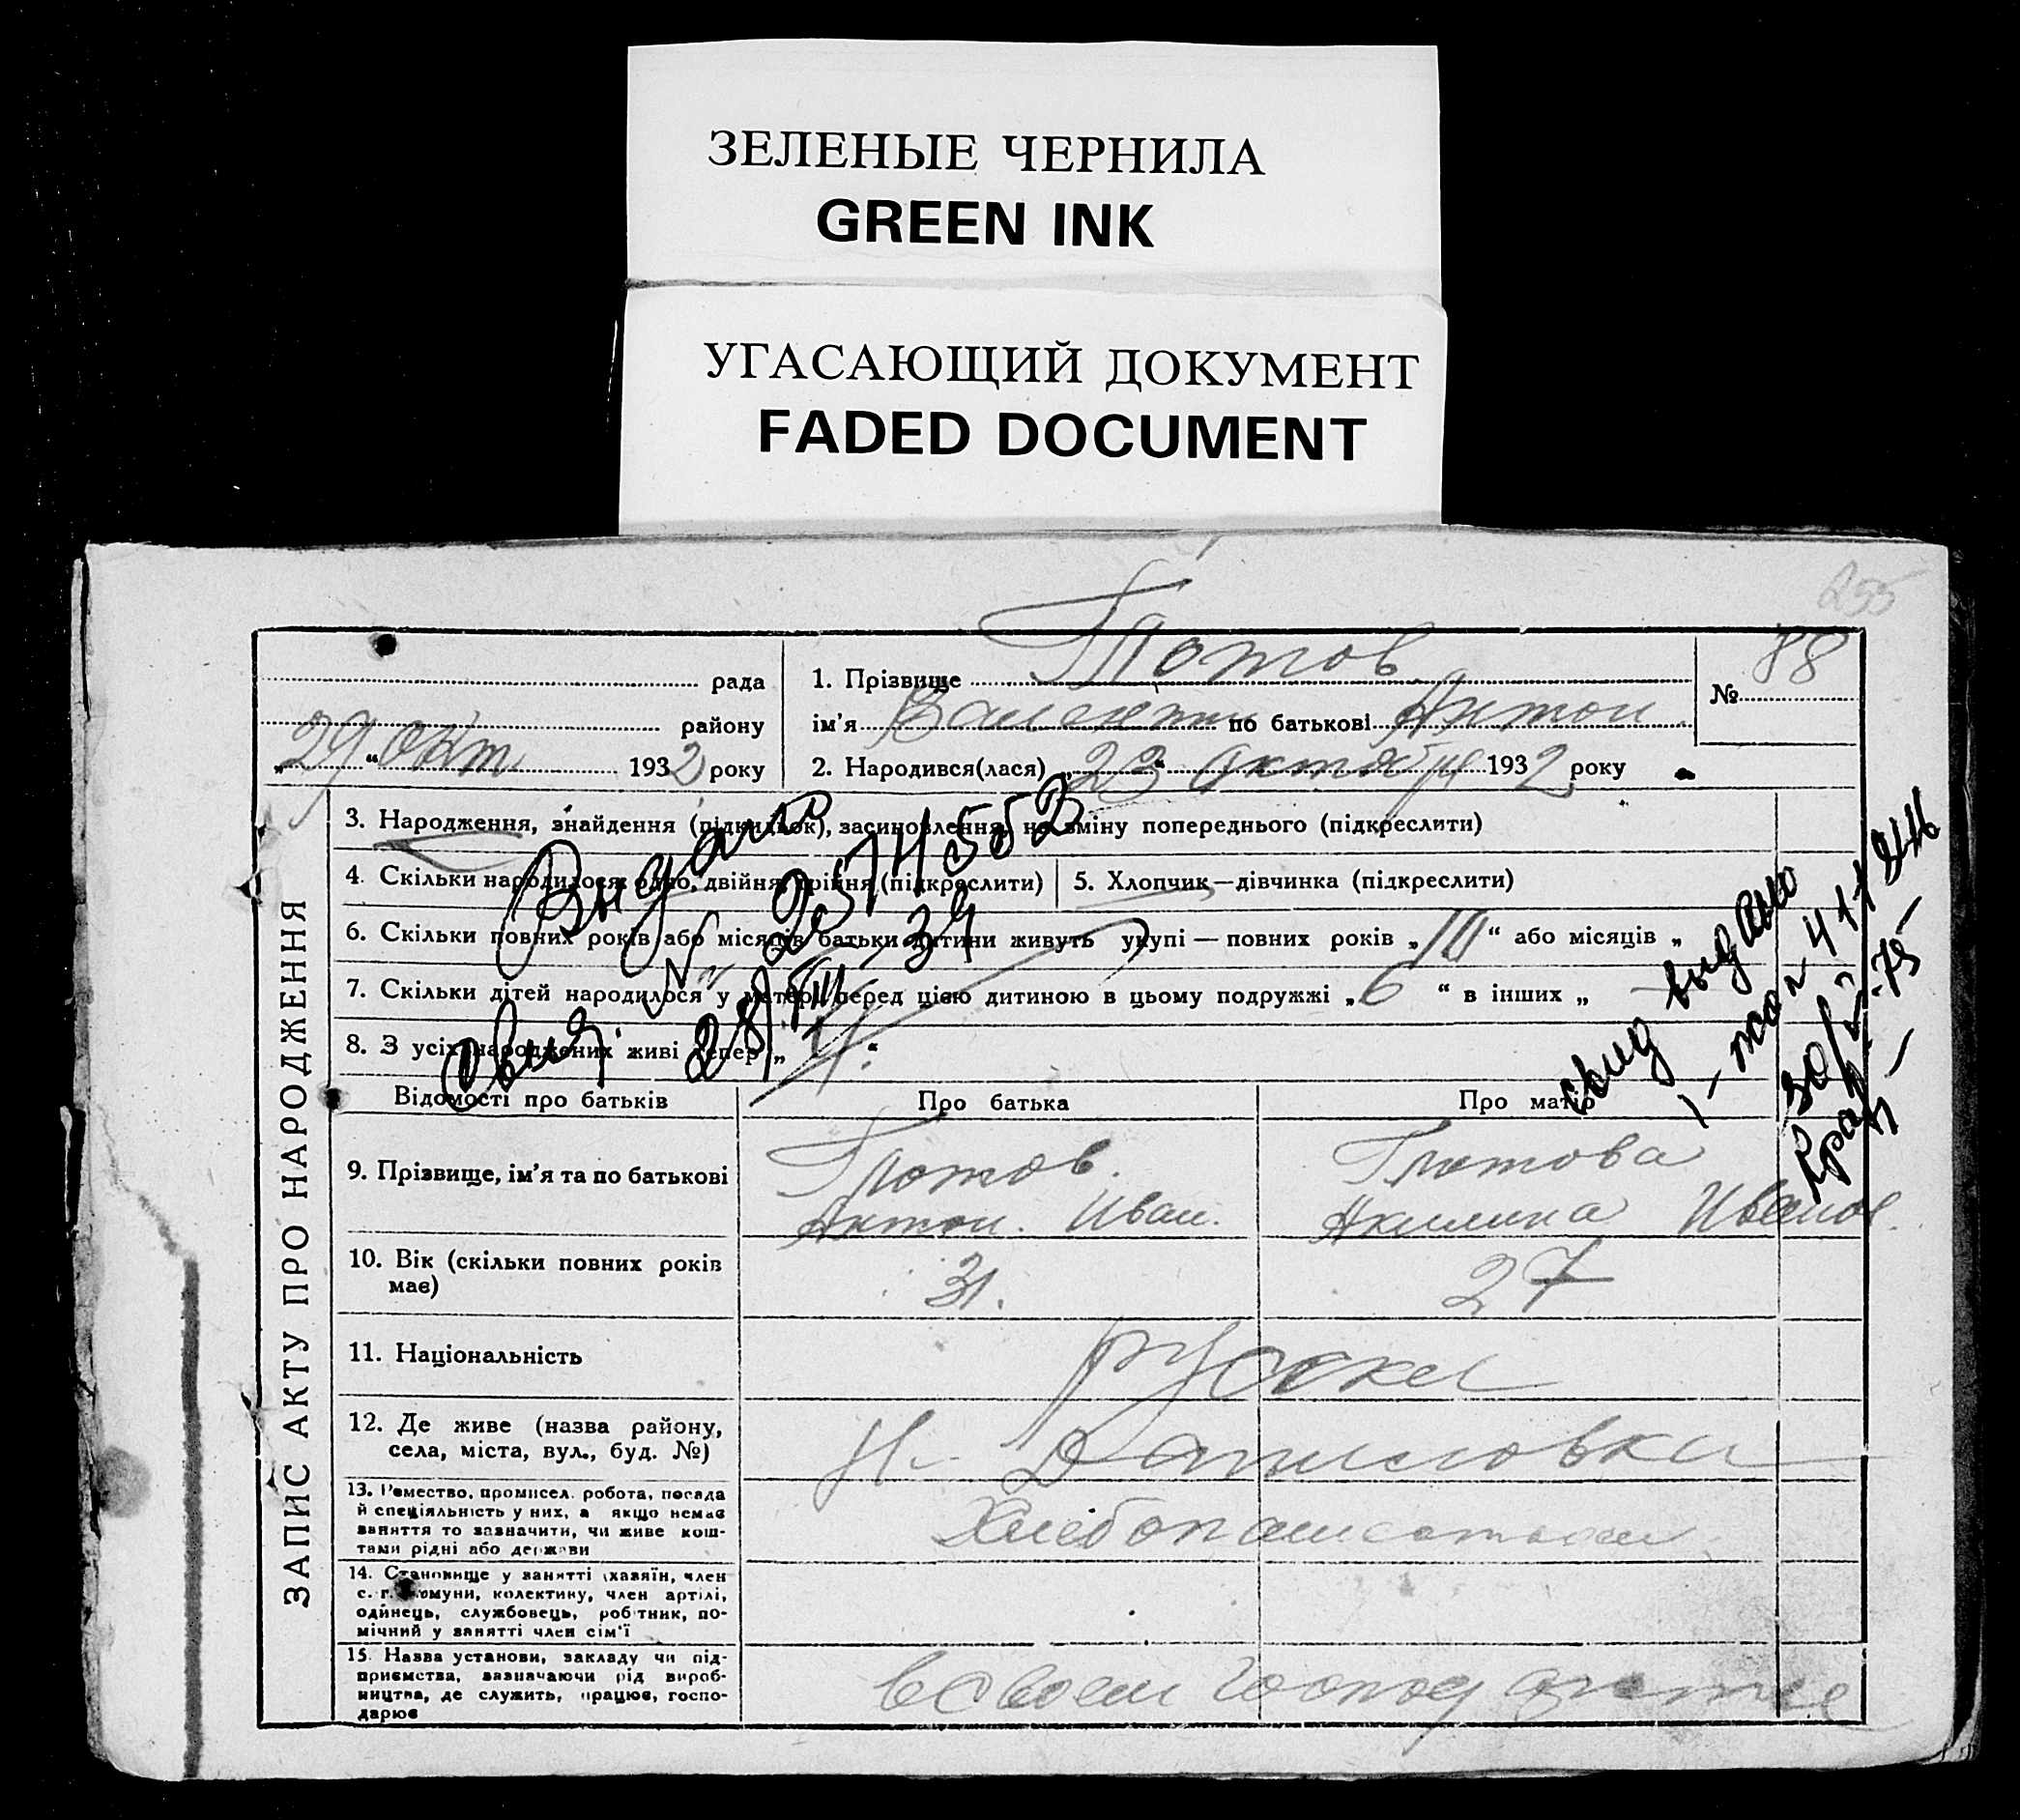 ЗЕЛЕНЫЕ ЧЕРНИЛА
GREEN INK
УГАСАЮЩИЙ ДОКУМЕНТ
FADED DOCUMENT
255
рада
району
„29“ окт. 1932 року
1. Прізвище
ім’я Валентин по батькові Антон
2. Народився(лася) „23“ октября 1932 року
№ 88
ЗАПИС АКТУ ПРО НАРОДЖЕННЯ
3. Народження, знайдення (підкидьок), засиновлення, на зміну попереднього (підкреслити)
4. Скільки народилося: одно, двійня, трійня (підкреслити)
5. Хлопчик—дівчинка (підкреслити)
6. Скільки повних років або місяців батьки дитини живуть укупі — повних років „10“ або місяців „
7. Скільки дітей народилося у матері перед цією дитиною в цьому подружжі „6“ в інших „ —
8. З усіх народжених живі тепер „4“
Выдано
Свид. №
28/VIII 39
свид выдано
Відомості про батьків
Про батька
Про матір
9. Прізвище, ім’я та по батькові
Антон. Иван.
Акилина Иванов.
10. Вік (скільки повних років має)
31.
27
11. Національність
руские
12. Де живе (назва району, села, міста, вул., буд. №)
Н. Даниловка
13. Ремество, промисел, робота, посада й спеціяльність у них, а якщо немає заняття то зазначити, чи живе коштами рідні або держави
14. Становище у занятті (хазяїн, член с.-г. комуни, колективу, член артілі, одинець, службовець, робітник, помічний у занятті член сім’ї
15. Назва установи, закладу чи підприємства, зазначаючи рід виробництва, де служить, працює, господарює
в своем